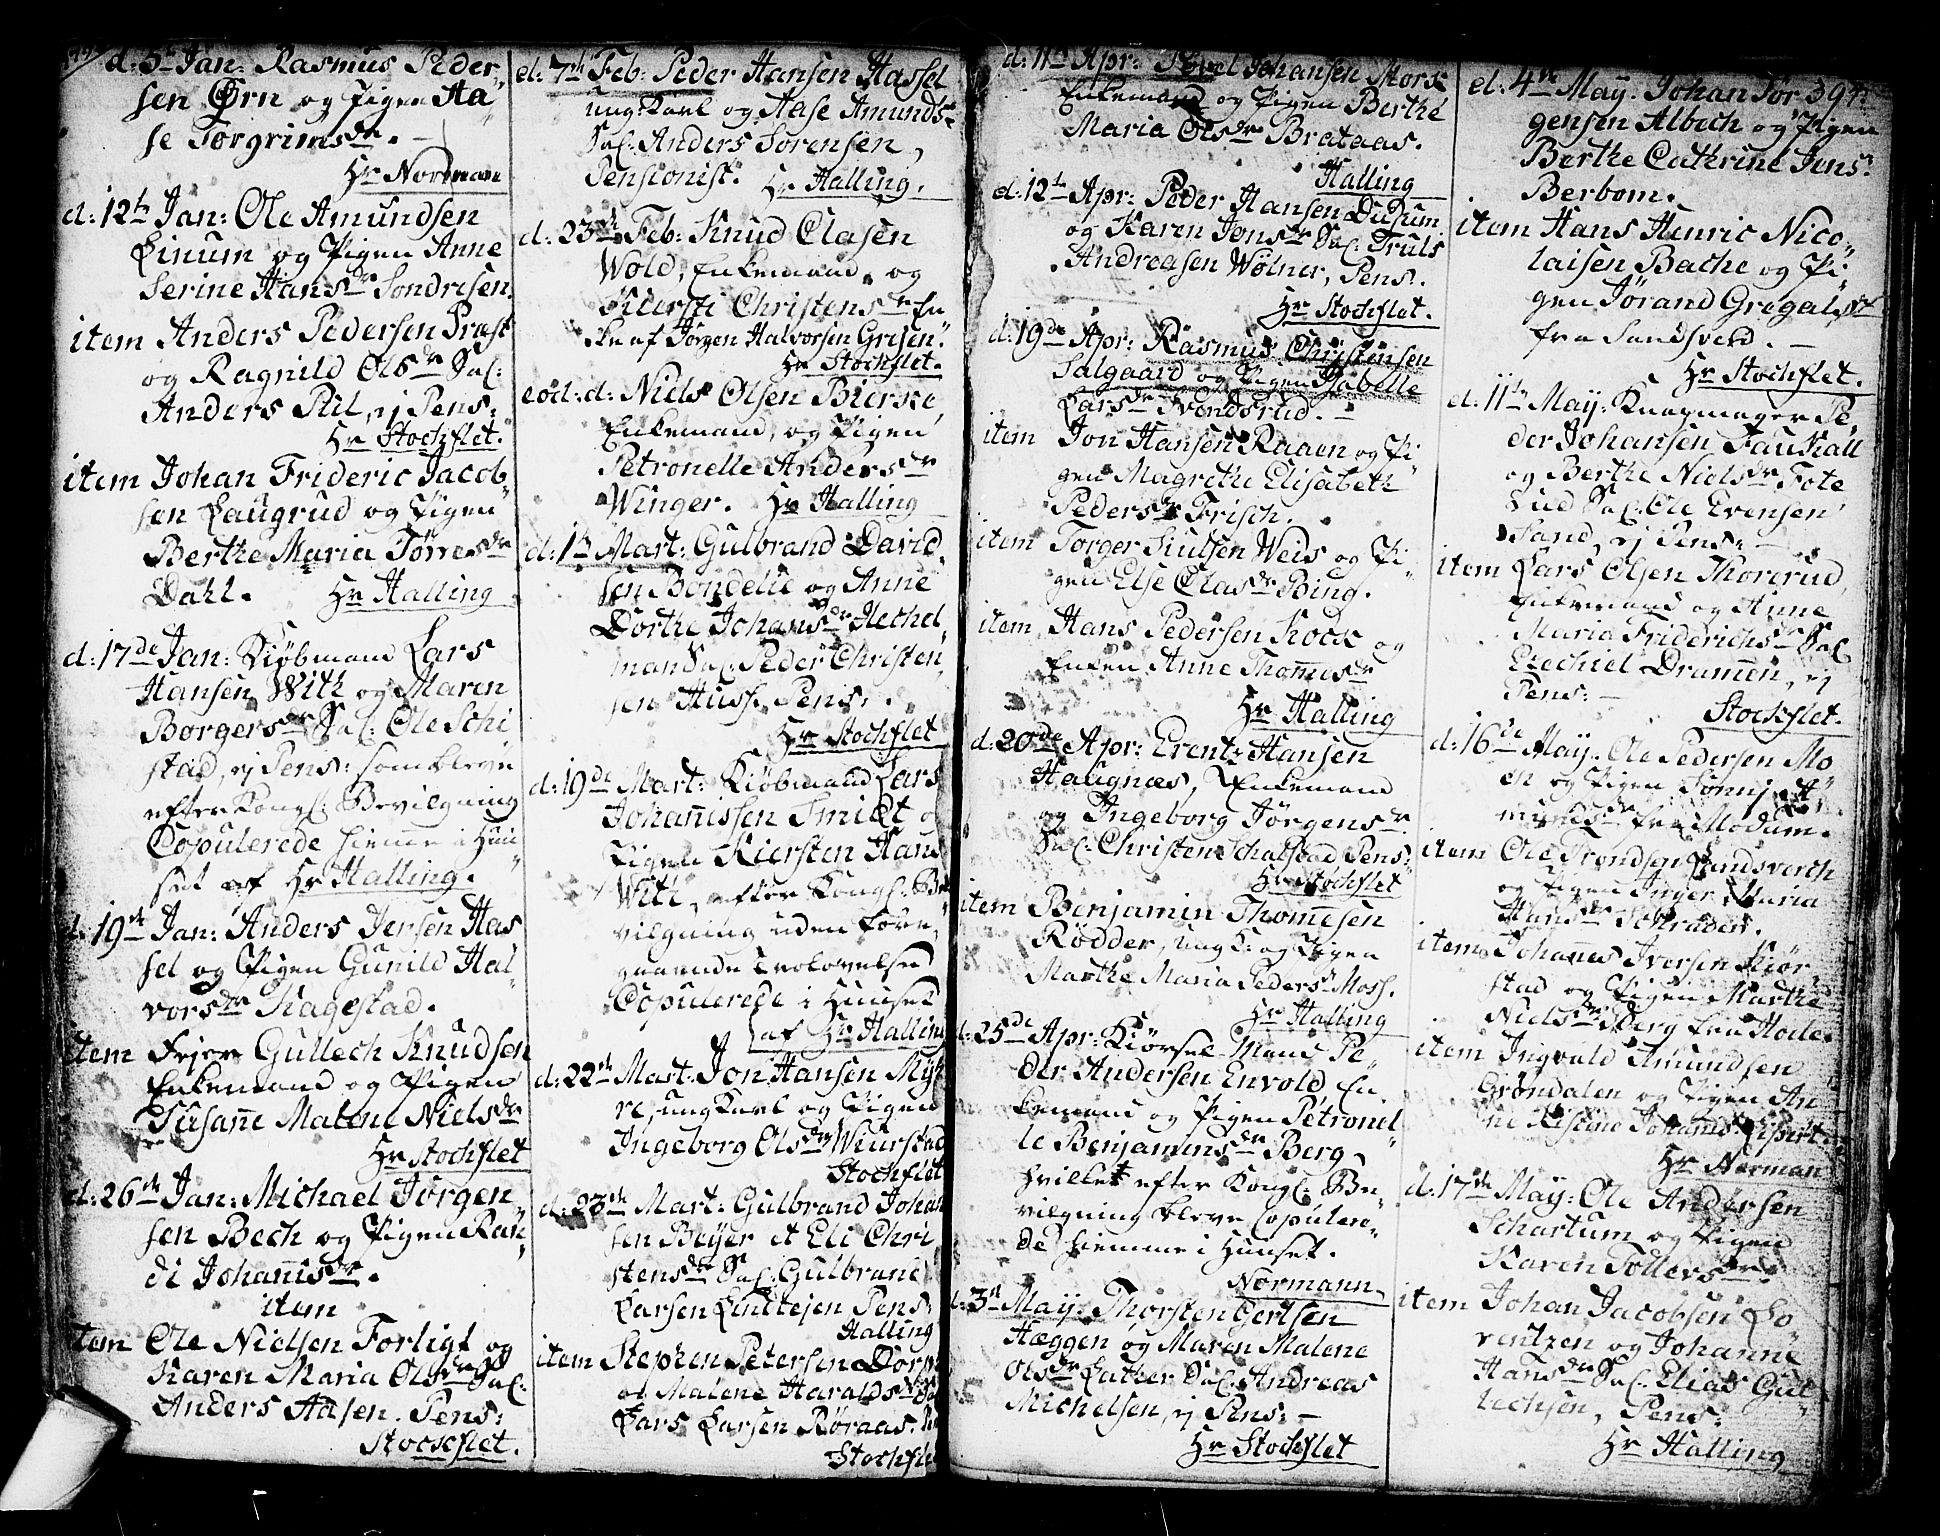 d: 5te Jan: Rasmus Peder„
sen Ørn og Pigen Aa„
se Torgrimsdr. —
Hr Normann
d: 12te Jan: Ole Amundsen
Linum og Pigen Anne
Serine Hansdr Sondresen.
item Anders Pedersen Præst
og Ragnild Olsdr Sal:
Anders Piil, ej Pens:
Hr Stochflet.
item Johan Frideric Jacob„
sen Laugrud og Pigen
Berthe Maria Törresdr
Dahl. Hr Halling
d: 17de Jan: Kiöbmand Lars
Hansen With og Maren
Borgersdr Sal: Ole Schi
stad, ej Pens: som bleve
efter Kongl: Bevilgning
Copulerede hiemme i Huu„
set af Hr Halling.
d: 19de Jan: Anders Jensen Has
sel og Pigen Gunild Hal„
vorsdr Kagestad.
item Gullech Knudsen
Enkemand og Pigen
Susanne Malene Nielsdr
Hr Stochflet
d: 26de Jan: Michael Jörgen„
sen Bech og Pigen Ran„
di Johannisdr.
item
item Ole Nielsen Forligt og
Karen Maria Olsdr Sal:
Anders Aasen. Pens:
Stochflet.
d: 7de Feb: Peder Hansen Hassel
ung Karl og Aase Amunds
Sal: Anders Sorensen,
Pensionist. Hr Halling.
d: 23de Feb: Knud Olasen
Wold, Enkemand og
Kiersti Christensdr En
ke af Jørgen Halvorsen Gresen.
Hr Stochflet.
eod: d: Niels Olsen Bierke,
Enkemand, og Pigen
Petronelle Andersdr
Winger. Hr Halling
d: 1te Mart: Gulbrand David„
sen Bondelie og Anne
Dorthe Johansdr Hechel„
man Sal: Peder Christen„
sen Huss. Pens:
Hr Stochflet
d: 19de Mart: Kiöbmand Lars
Johannissen Smidt o
Pigen Kiersten Hans
With, efter Kongl: Be
vilgning uden fore„
gaaende Trolovelse
Copulerede i Huuset
af Hr Halling
d: 22de Mart. Jon Hansen Myh
re, ung Karl og Pigen
Ingeborg Olsdr Wiurstad
Stochflet
d: 23de Mart: Gulbrand Johan
sen Beyer et Eli Chri
stensdr Sal: Gulbrand
Larsen Lindtejen Pens:
Halling
item Stephen Petersen Dorn
og Malene Haraldsdr Sal
Lars Larsen Röraas.
Stochflet
d: 11te Apr: Povel Johansen Mors
Enkemand og Pigen Berthe
Maria Olsdr Brataas.
Halling
d: 12te Apr: Peder Hansen Dusum
og Karen Jonsdr Sal: Truls
Andreasen Wølner, Pens:
Hr Stochflet.
d: 19de Apr: Rasmus Christensen
Salgaard og Pigen Isabelle
Larsdr Trondsrud. —
item Jon Hansen Raaen og Pi„
gen Magrethe Elisabeth
Pedersdr Frisch.
item Torger Kulsen Weis og Pi„
gen Else Olasdr Bing.
item Hans Pedersen Kock og
Enken Anne Thomesdr
Hr Halling
d: 20de Apr: Erentz Hansen
Haugnæs, Enkemand
og Ingeborg Jörgensdr
Sal: Christen Schalstad Pens:
Hr Stochflet
item Benjamin Thomesen
Rödder, ung K: og Pigen
Marthe Maria Peders: Moss.
Hr Halling
d: 25de Apr: Kiörsel Mand Pe„
der Andersen Envold En„
kemand og Pigen Petronel„
le Benjaminsdr Berg,
hvilket efter Kongl: Be„
vilgning bleve Copulere„
de hiemme i Huuset.
Normann.
d: 3de May: Thorsten Gertsen
Hæggen og Maren Malene
Olsdr Lather Sal: Andreas
Michelsen, ej Pens: —
Hr Stochflet
394.
d: 4de May. Johan Jør„
gensen Albech og Pigen
Berthe Cathrine Jens:
Berbom.
item Hans Henric Nico„
laisen Bache og Pi„
gen Jörand Gregalsdr
fra Sandsverd. —
Hr Stochflet.
d: 11te May: Knapmager Pe„
der Johansen Fauskall
og Berthe Nielsdr Fote
Sal: Ole Evensen
Sand, ej Pens: —
item Lars Olsen Thorgrud,
Enkemand og Anne
Maria Friderichs Sal
Ezechiel Drammen, ej
Pens: —
Stochflet.
d: 16de May: Ole Pedersen Mo
en og Pigen Sönnj A„
mundsdr fra Modum.
item Ole Trondsen Landsverch
og Pigen Inger Maria
Hansdr Schrader.
item Johannes Iversen Kiör
stad og Pigen Marthe
Nielsdr Berg fra Hole.
item Ingvald Amundsen
Gröndalen og Pigen An„
ne Kistine Johannes:
Hr Norman
d: 17de May: Ole Andersen
Schartum og Pigen
Karen Tollersdr.
item Johan Jacobsen Lo„
rentzen og Johanne
Hansdr Sal: Elias Gul„
lechsen, Pens:
Hr Halling